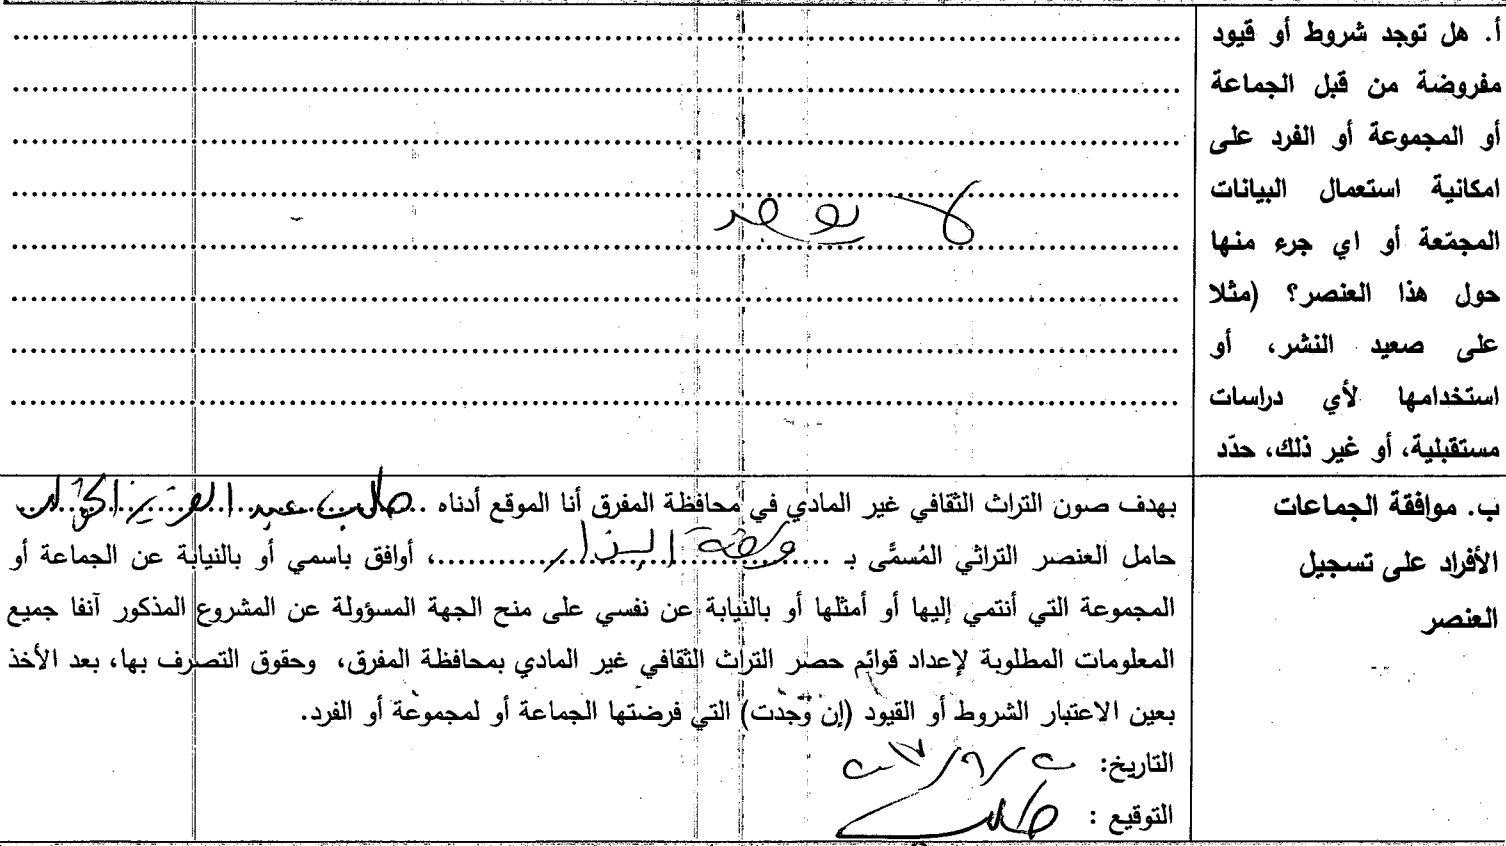 أ. هل توجد شروط أو قيود
مفروضة من قبل الجماعة
أو المجموعة أو الفرد على
امكانية استعمال البيانات
المجمّعة أو اي جرء منها
حول هذا العنصر؟ (مثلا
على صعيد النشر، أو
استخدامها لأي دراسات
مستقبلية، أو غير ذلك، حدّد
لا يوجد
ب. موافقة الجماعات
الأفراد على تسجيل
العنصر
بهدف صون التراث الثقافي غير المادي في محافظة المفرق أنا الموقع أدناه طالب عبد العزيز
حامل العنصر التراثي المُسمَّى بـ ........، أوافق باسمي أو بالنيابة عن الجماعة أو
المجموعة التي أنتمي إليها أو أمثلها أو بالنيابة عن نفسي على منح الجهة المسؤولة عن المشروع المذكور آنفا جميع
المعلومات المطلوبة لإعداد قوائم حصر التراث الثقافي غير المادي بمحافظة المفرق، وحقوق التصرف بها، بعد الأخذ
بعين الاعتبار الشروط أو القيود (إن وُجدت) التي فرضتها الجماعة أو لمجموعة أو الفرد.
التاريخ:
التوقيع : طالب